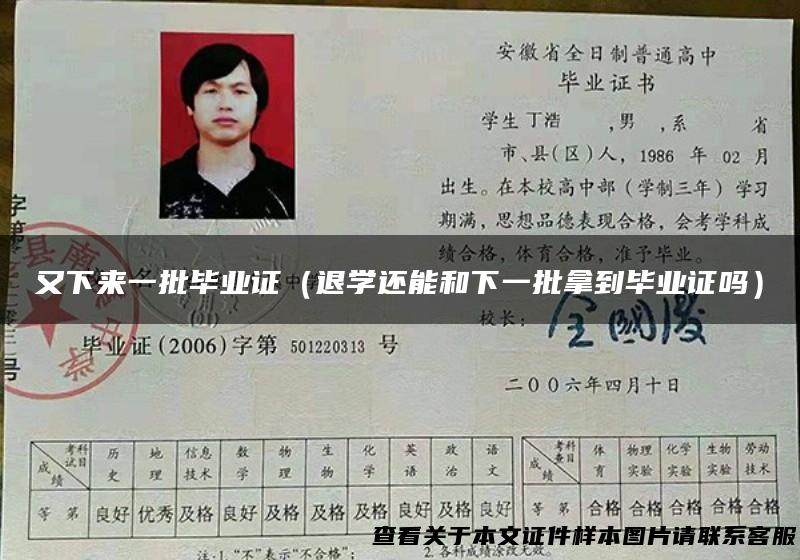 安徽省全日制普通高中
毕业证书
学生 丁浩 ,男 ,系 省
市、县(区)人, 1986 年 02 月
出生。在本校高中部(学制三年)学习
期满,思想品德表现合格,会考学科成
绩合格,体育合格,准予毕业。
又下来一批毕业证(退学还能和下一批拿到毕业证吗)
校长:
毕业证(2006)字第 501220313 号
二〇〇六年四月十日
考试科目 历史 地理 信息技术 数学 物理 生物 化学 英语 政治 语文
成绩
等第 良好 优秀 及格 良好 及格 及格 及格 良好 及格 良好
考查科目 体育 物理实验 化学实验 生物实验 劳动技术
成绩
等第 合格 合格 合格 合格 合格
注:1."不"表示"不合格"; 2.各科成绩涂改无效。
查看关于本文证件样本图片请联系客服